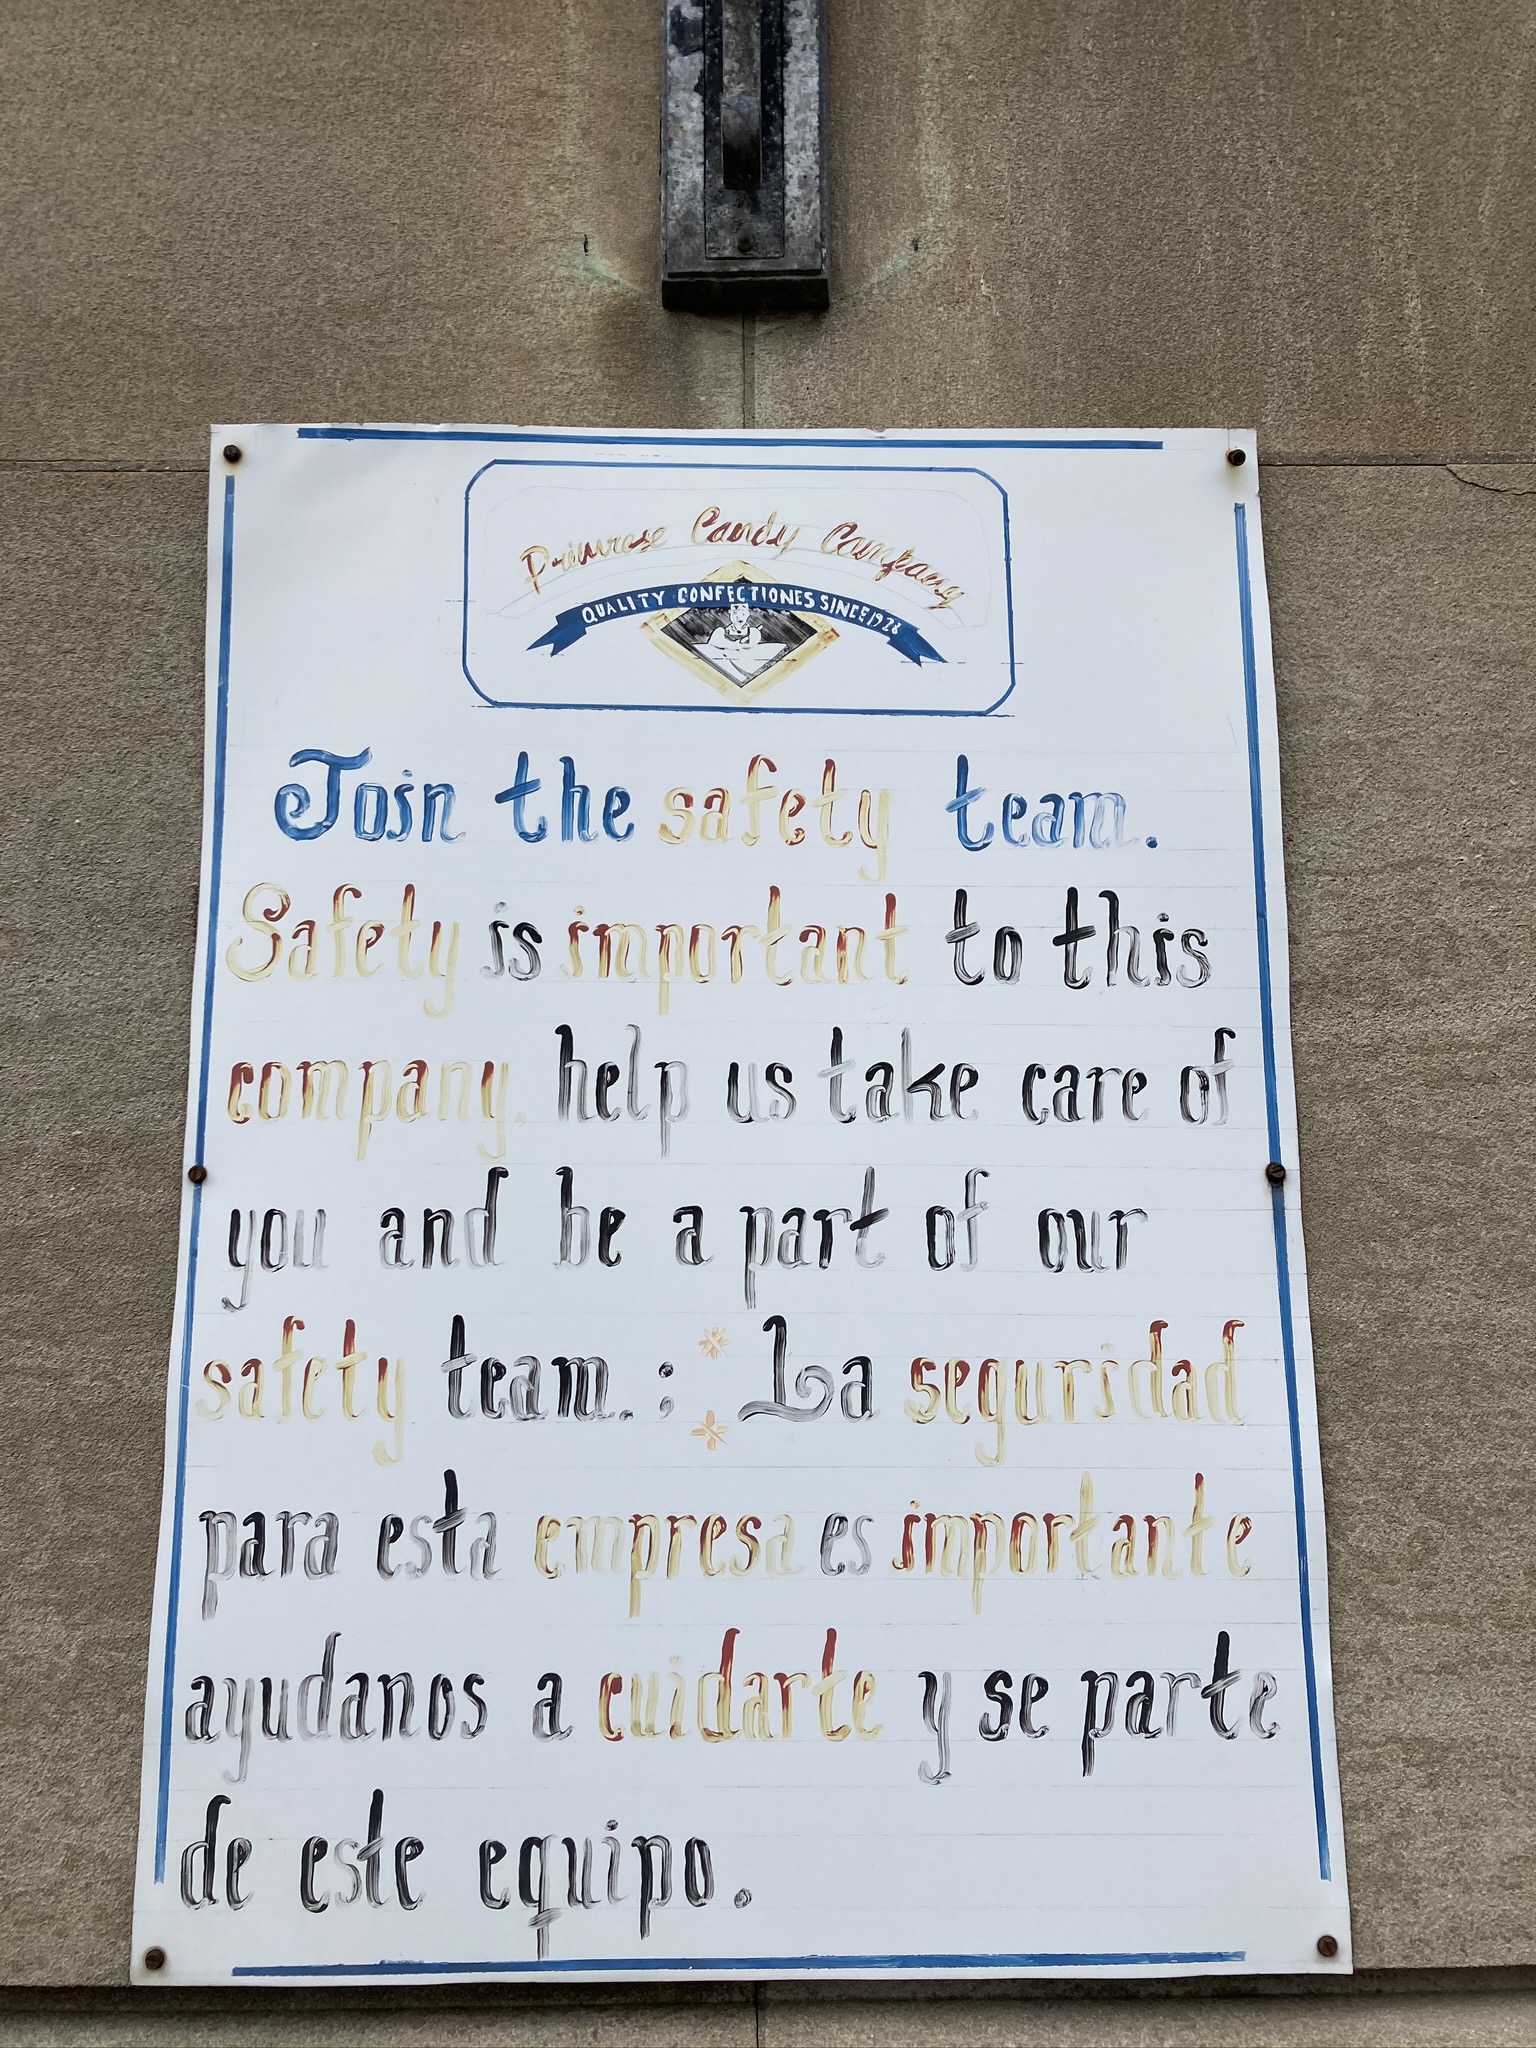 Primrose Candy Company
QUALITY CONFECTIONES SINCE 1928
Join the safety team.
Safety is important to this
company. help us take care of
you and be a part of our
safety team. : La seguridad
para esta empresa es importante
ayudanos a cuidarte y se parte
de este equipo.